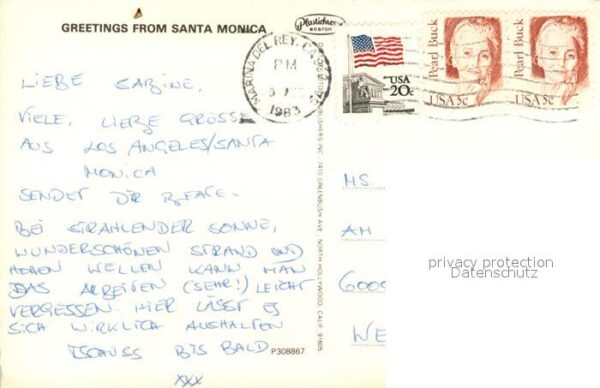 GREETINGS FROM SANTA MONICA
Plastichrome
BOSTON
MARINA DEL REY, CA
PM
1983
USA
20c
Pearl Buck
USA 5c
Pearl Buck
USA 5c
LIEBE SABINE,
VIELE, LIEBE GRÜSSE
AUS LOS ANGELES/SANTA
MONICA
SENDET DIR BEATE.
BEI STRAHLENDER SONNE,
WUNDERSCHÖNEN STRAND UND
HOHEN WELLEN KANN MAN
DAS ARBEITEN (SEHR!) LEICHT
VERGESSEN. HIER LÄSST ES
SICH WIRKLICH AUSHALTEN.
TSCHÜSS BIS BALD
XXX
P308867
PUBLISHERS INC. 7410 GREENBUSH AVE. NORTH HOLLYWOOD CALIF. 91605
MS
AM
6000
WE
privacy protection
Datenschutz